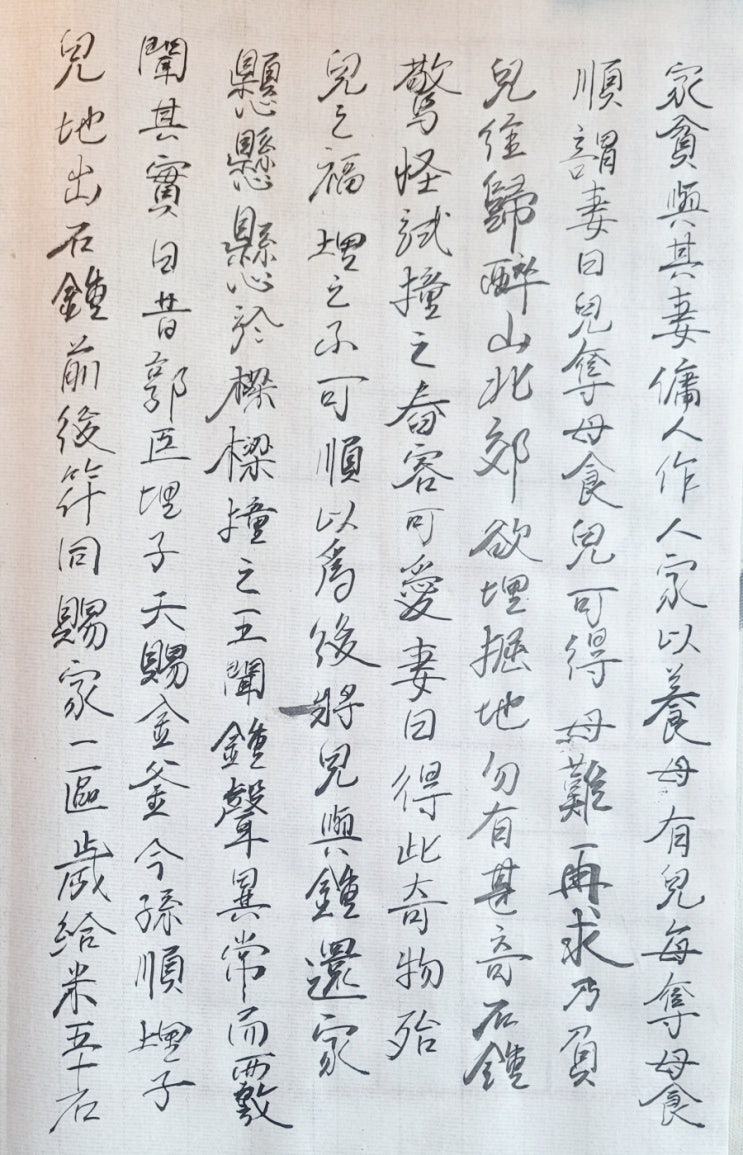 家貧與其妻傭人作人家以養母有兒每奪母食
順謂妻曰兒奪母食兒可得母難再求乃負
兒往歸醉山北郊欲埋掘地勿有甚奇石鍾
驚怪試撞之舂容可愛妻曰得此奇物殆
兒之福埋之不可順以爲後將兒與鍾還家
懸懸懸於樑樑撞之王聞鍾聲異常而覈
聞其實曰昔郭巨埋子天賜金釜今孫順埋子
兒地出石鍾前後符同賜家二區歲給米五十石